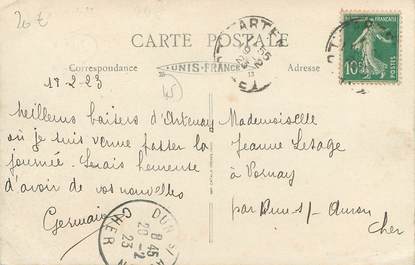 20 €
CARTE POSTALE
Correspondance
UNIS-FRANCE
Adresse
18-2-23
45
Meilleurs baisers d'Artenay
où je suis venue passer la
journée. Serais heureuse
d'avoir de vos nouvelles
Germain
Mademoiselle
Jeanne Lesage
à Vornay
par Dun s/ Auron
Cher
10
POSTES
DUN S/
8 45
20 -2
23
CHER